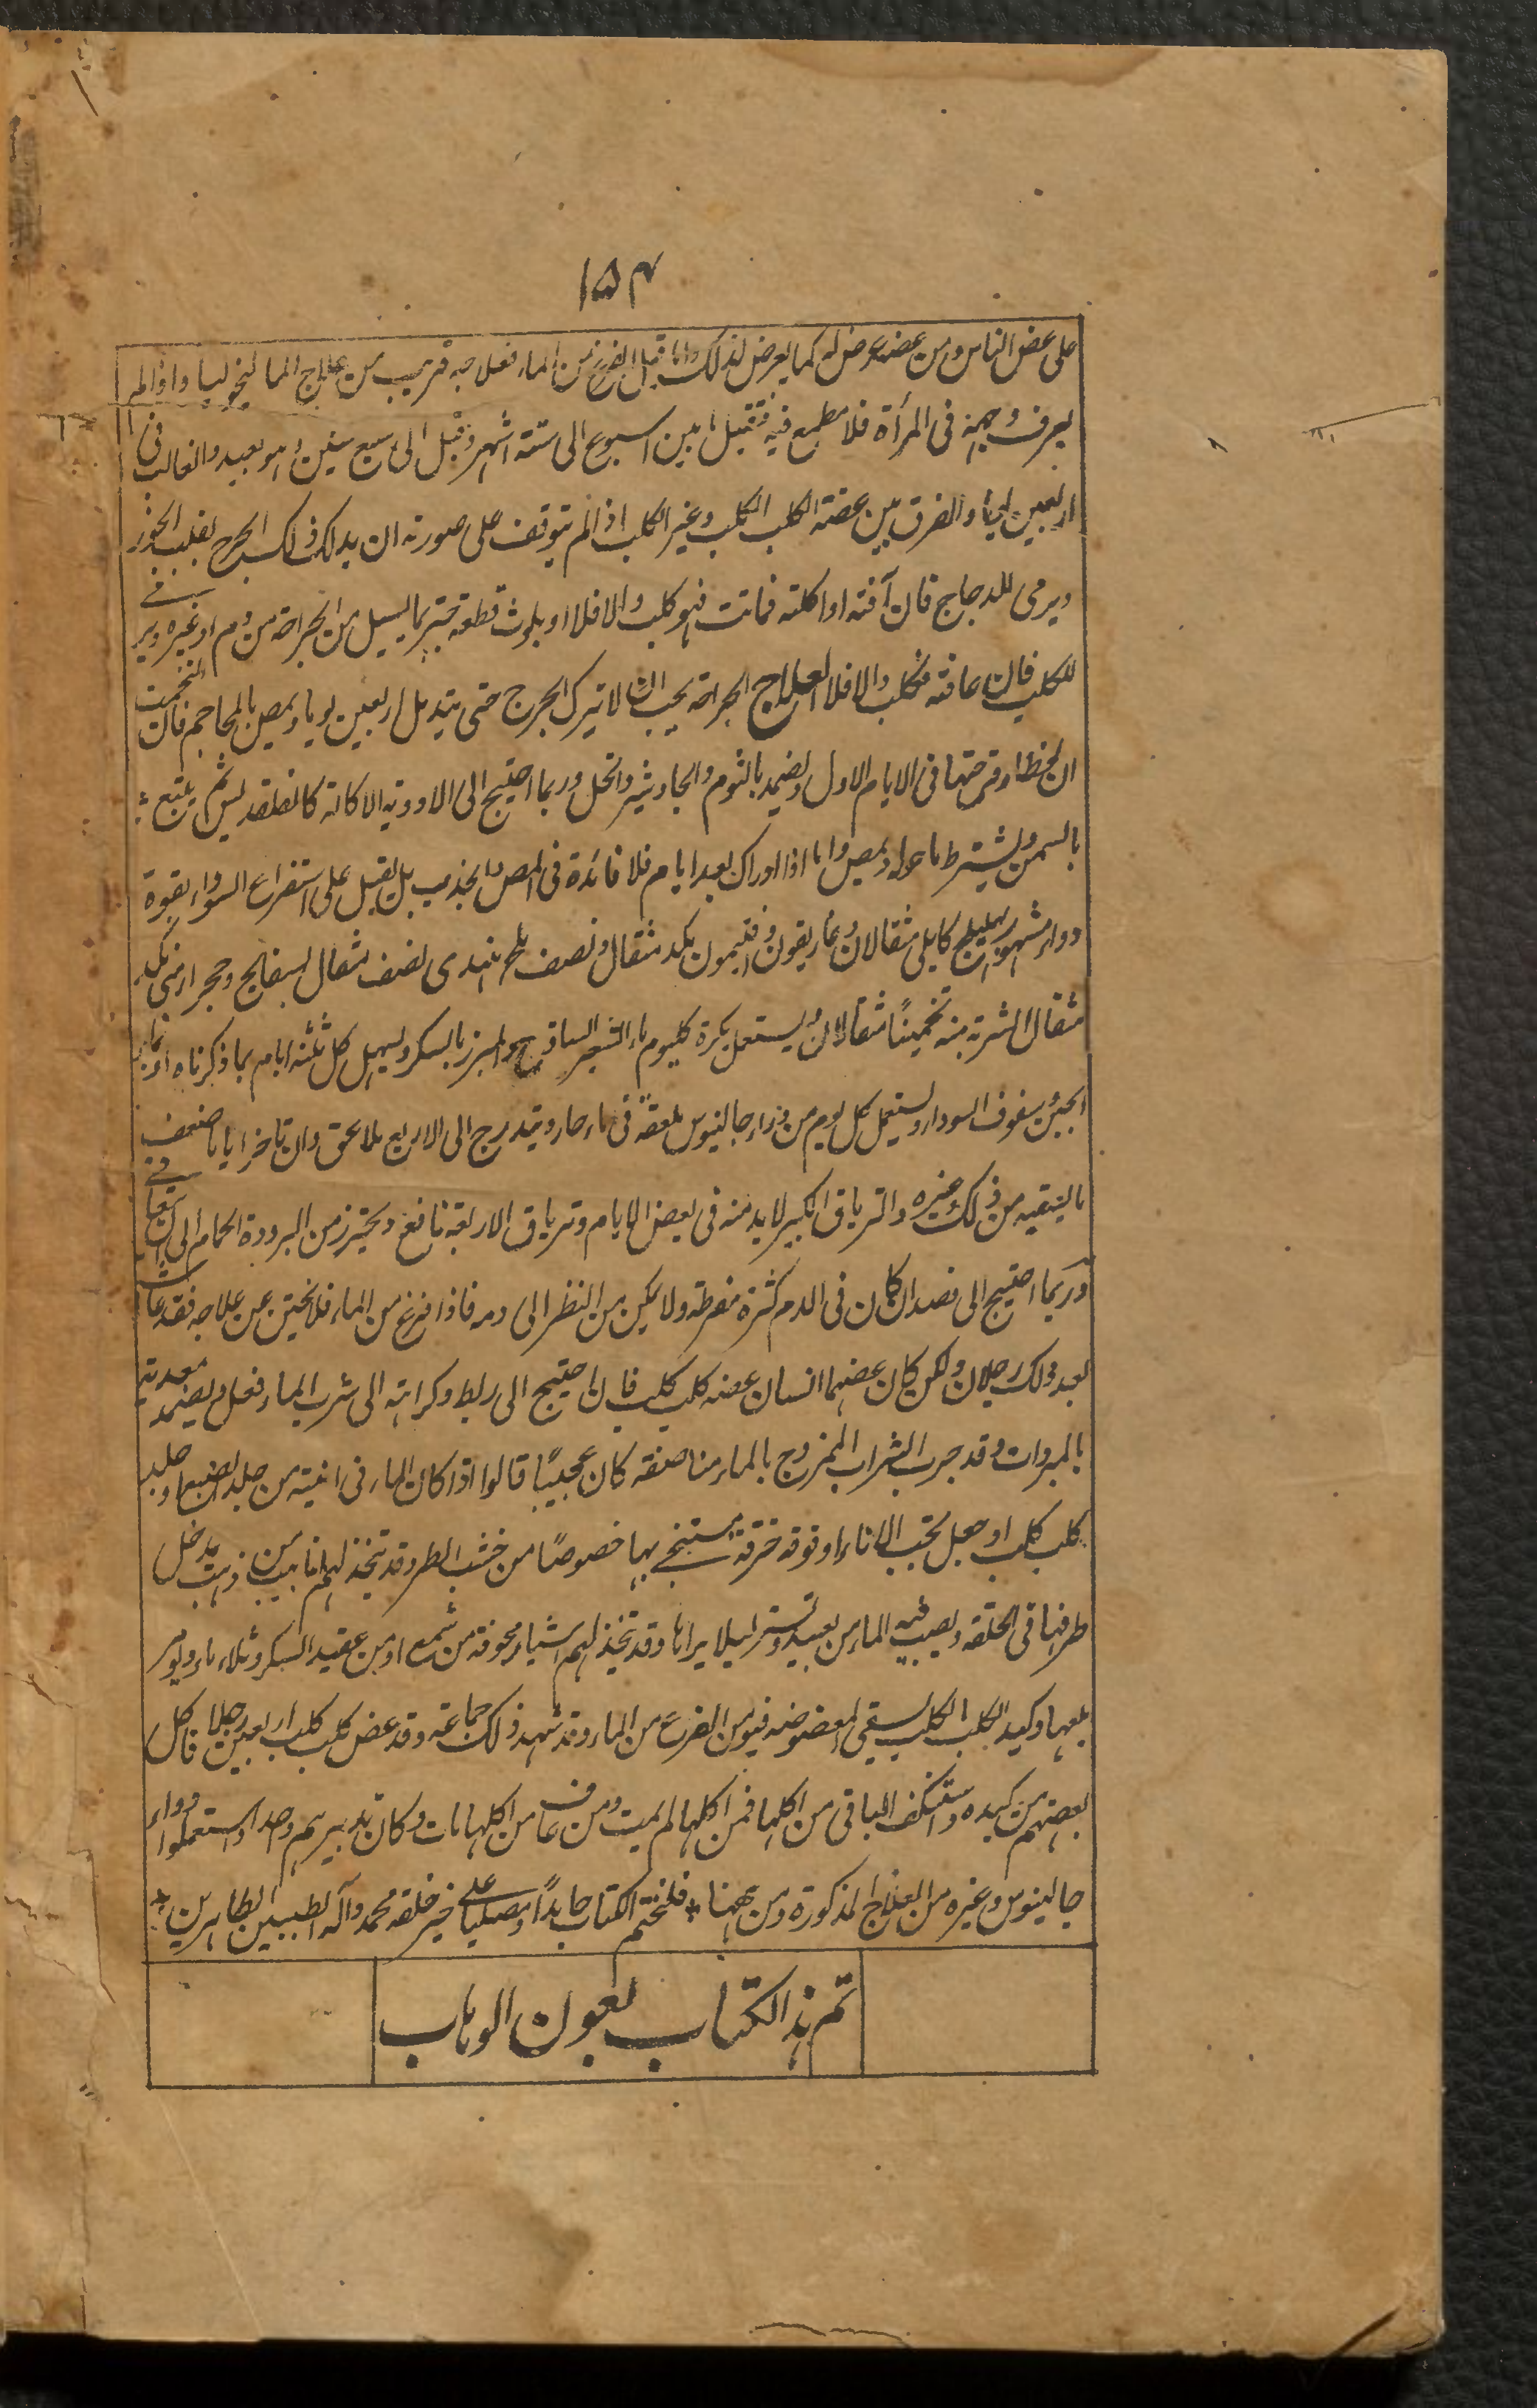 ١٥٣
على عض الناس ومن عضه عرض له كما يعرض لذلك واما قبل الفزع من الماء فعلاجه قريب من علاج المالنخوليا واذا لم
يعرف وجهه فى المرأة فلا مطمع فيه فتقتل ما بين اسبوع الى ستة اشهر وقيل الى سبع سنين وهو بعيد والغالب فى
اربعين يوماً والفرق بين عضة الكلب الكلب وغير الكلب اذا لم يتوقف على صورته ان يدلك ذلك الجرح بقلب الجوز
ويرمى للدجاج فان آفته او اكلته فماتت فهو كلب والا فلا او يلوث قطعة خبز بما يسيل من الجراحة من دم او غيره ويرمى
للكلب فان عافته فكلب والا فلا العلاج الجراحة يجب ان لا تترك الجرح حتى يندمل اربعين يوما ويمص بالمحاجم فان التحمت
ان لحظها وقرحتها فى الايام الاول ويضمد بالثوم والجاوشير والخل وربما احتيج الى الادوية الاكالة كالفلقديس ثم يتبع
بالسمن ويشترط ما حوله ويمص واما اذا ادرك بعد ايام فلا فائدة فى المص والجذب بل يقبل على استفراغ السوداء بقوة
دواء مشهور بهليلج كابلى مثقالان وغاريقون وافتيمون بكد مثقال ونصف ملح هندى نصف مثقال بسفايج وحجر ارمنى بكد
مثقال الشربة منه تخميناً مثقالان ويستعمل بكرة كل يوم ماء الشعير الساذج او المبرز بالسكر ويسهل كل ثلثة ايام بما ذكرناه او بماء
الجبن وسفوف السوداء ويستعمل كل يوم من دواء جالينوس ملعقة فى ماء حار ويتدرج الى الاربع ملاعق وان تاخر اياما ضعف
مايتقيه من ذلك وغيره والترياق الكبير لابد منه فى بعض الايام وترياق الاربعة نافع ويحترز من البرودة الحمام الى ان يتعافى
وربما احتيج الى فصد ان كان فى الدم كثرة مفرطة ولا يمكن من النظر الى دمه فاذا فزع من الماء فلا يختبى عن علاجه فقد عاش
بعد ذلك رجلان ولكن كان عضهما انسان عضه كلب كلب فان احتيج الى ربط وكراهته الى شرب الماء فعل ويضمد معدته
بالمبردات وقد جرب الشراب الممزوج بالماء مناصفة كان عجيباً قالوا اذا كان الماء فى انية من جلد الضبع او جلد
كلب كلب او جعل تحت الاناء او فوقه خرقة مستنجى بها خصوصاً من خشب الطرفا وقد تتخذ لهم انابيب من ذهب يدخل
طرفها فى الحلقة ويصب فيه الماء من بعيد وتستر ليلا يراها وقد تتخذ لهم اشياء مجوفة من شمع او من عقيد السكر وتملاء ماء ويؤمر
بلعها وكبد الكلب الكلب يسقى المعضوض فيومن الفزع من الماء وقد شهد ذلك جماعة وقد عض كلب كلب اربعين رجلا فاكل
بعضهم من كبده واستنكف الباقى من اكلها فمن اكلها لم يمت ومن عاف من اكلها مات وكان تدبيرهم واحدا واستعملوا دواء
جالينوس وغيره من العلاج المذكورة ومن ههنا * فلنختم الكتاب حامداً ومصلياً على خير خلقه محمد وآله الطيبين الطاهرين *
تم هذا الكتاب بعون الوهاب